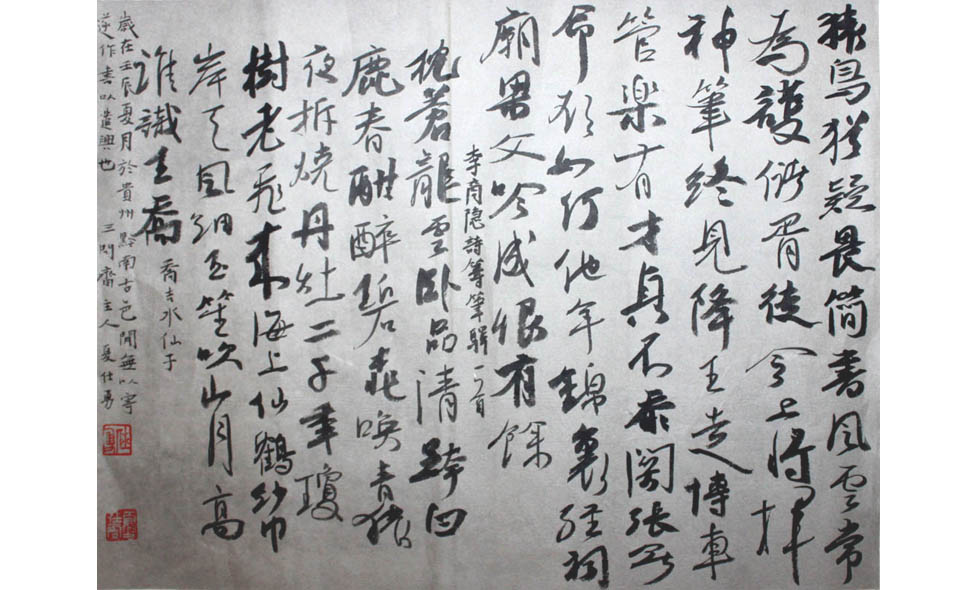 猿鳥猶疑畏簡書風雲常
為護儲胥徒令上將揮
神筆終見降王走傳車
管樂有才真不忝關張無
命欲如何他年錦裏經祠
廟梁父吟成恨有餘
李商隐詩籌筆驛一首
枕蒼龍雲臥品清跨白
鹿春酣醉碧桃喚青猿
夜拆燒丹灶二千年瓊
樹老飛來海上仙鶴紗巾
岸天風細玉笙吹山月高
誰識王喬 喬吉水仙子
歲在壬辰夏月於貴州黔南古邑閒無以寄
遂作書以遣興也 齋主人夏仕勇